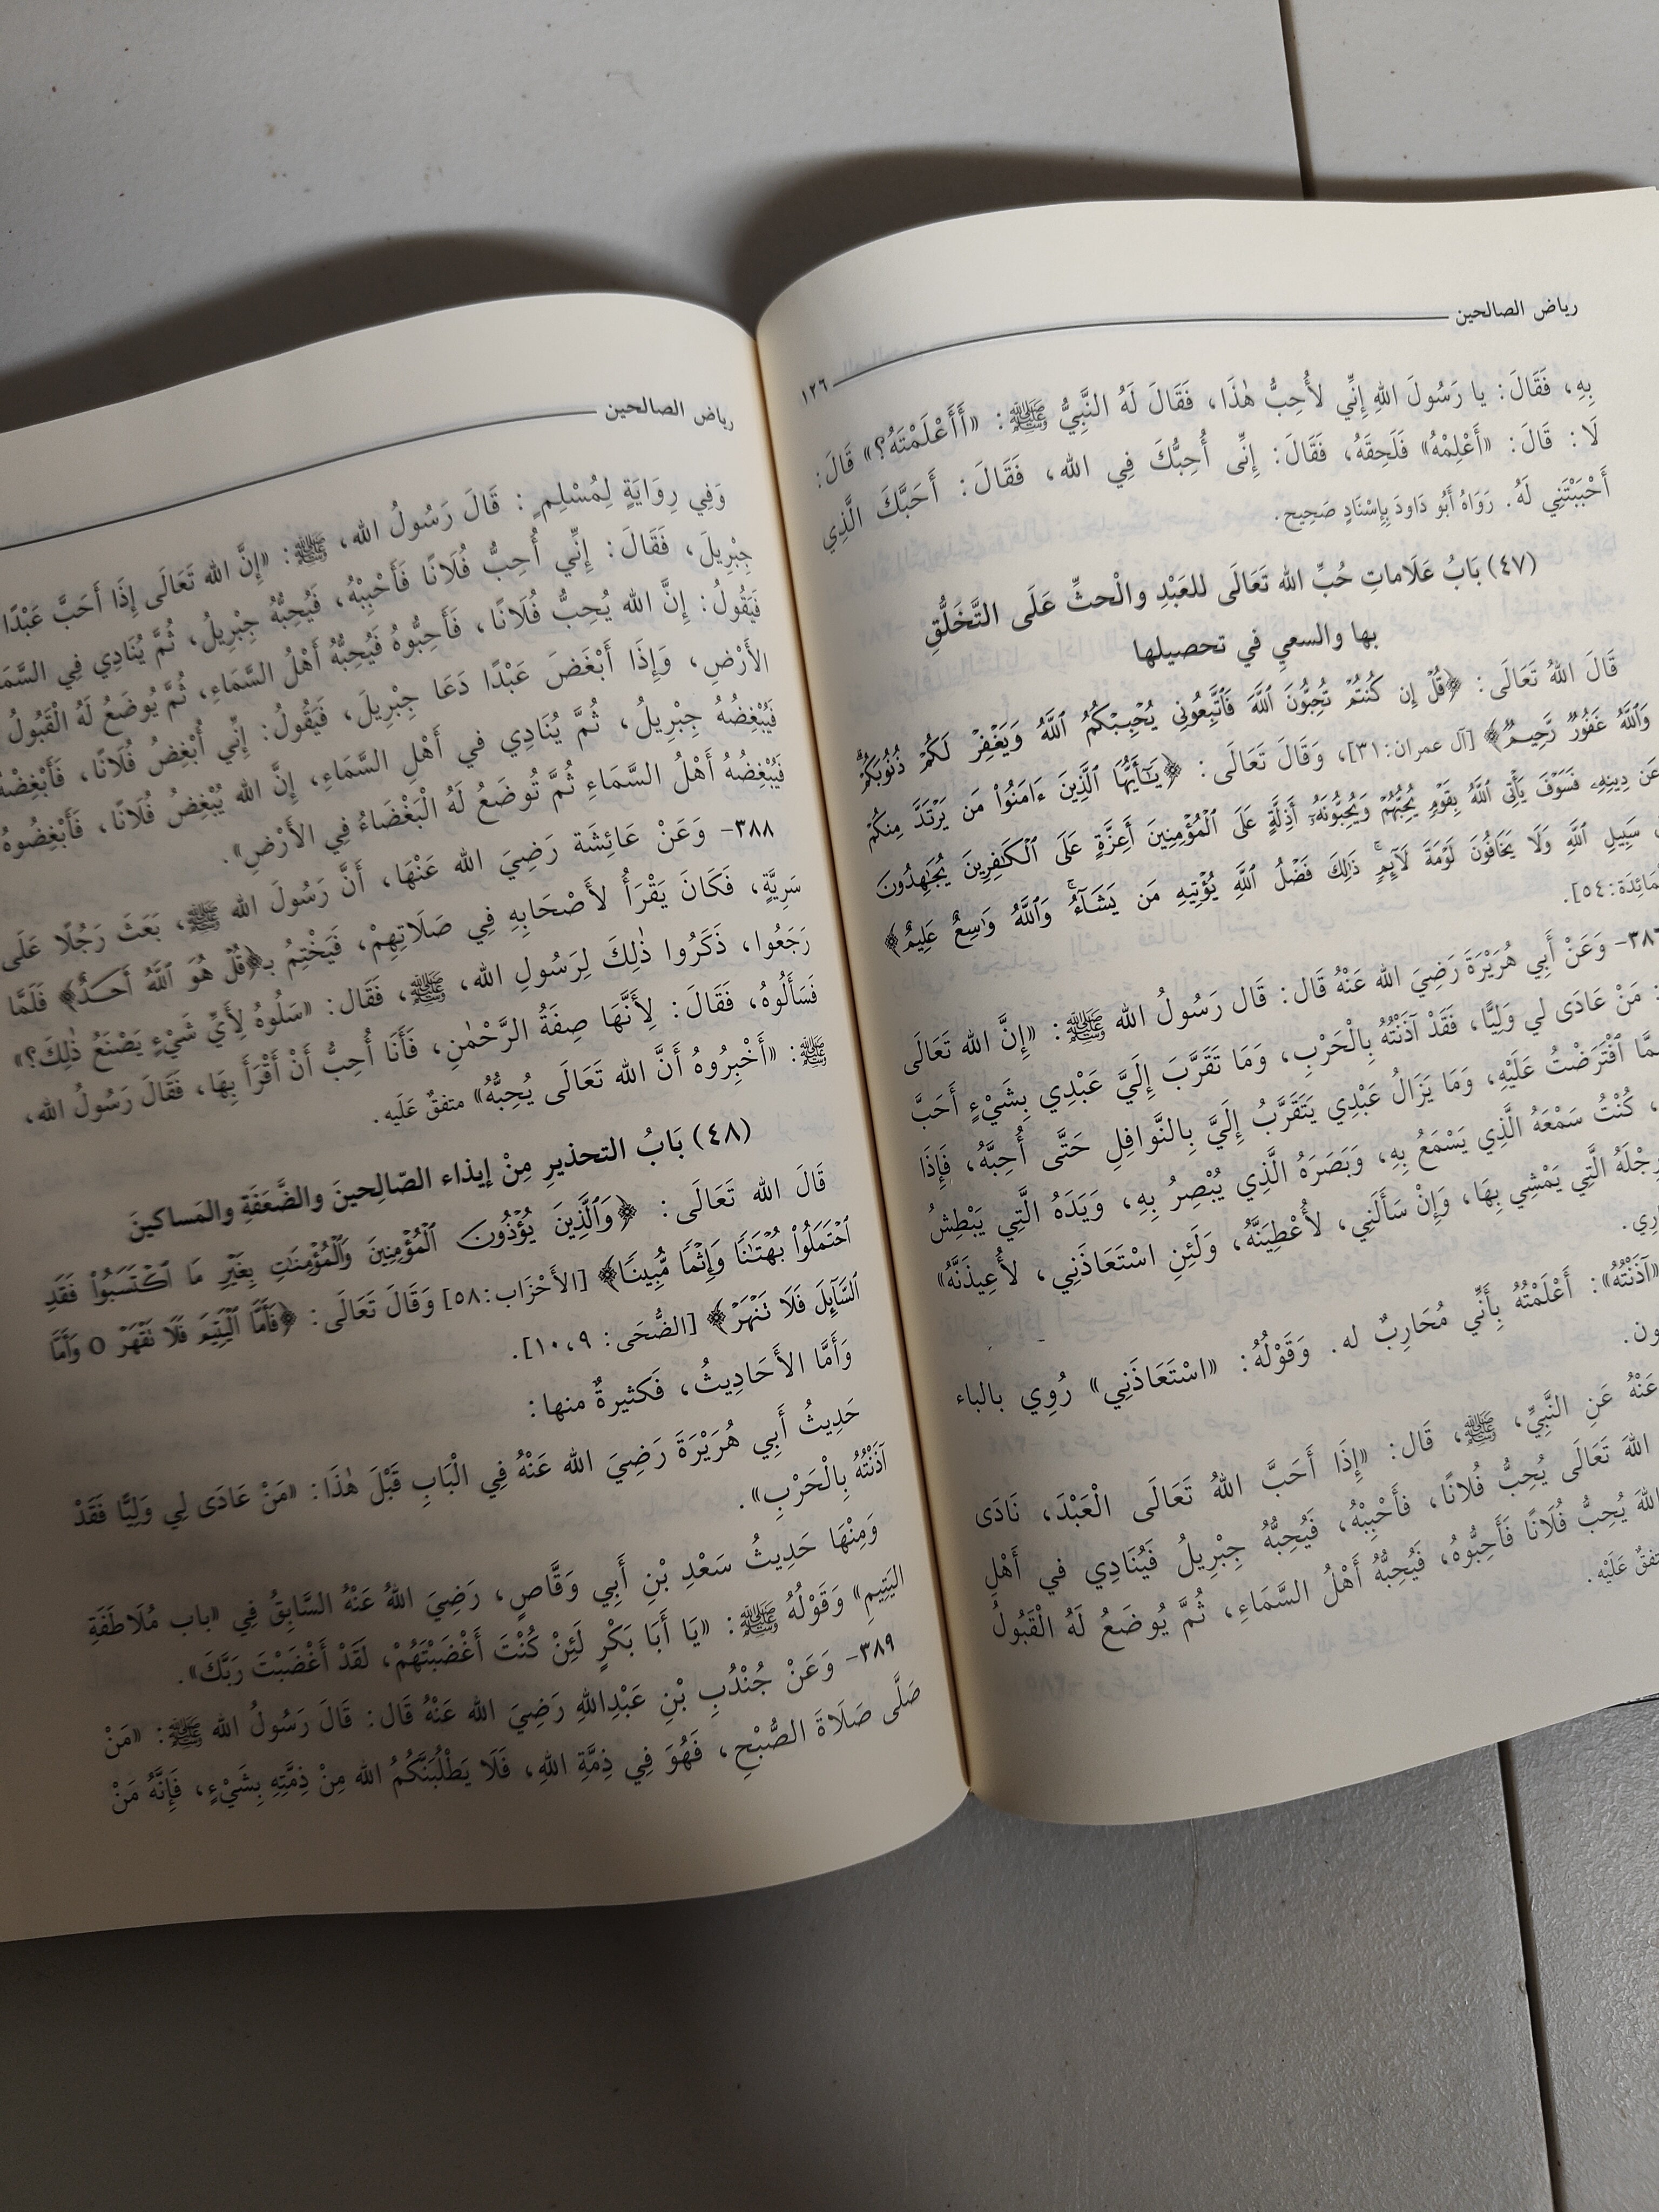 رياض الصالحين
١٢٦
بِهِ، فَقَالَ: يا رَسُولَ اللهِ إِنِّي لأُحِبُّ هٰذَا، فَقَالَ لَهُ النَّبِيُّ ﷺ: «أَأَعْلَمْتَهُ؟» قَالَ:
لَا: قَالَ: «أَعْلِمْهُ» فَلَحِقَهُ، فَقَالَ: إِنِّى أُحِبُّكَ فِي الله، فَقَالَ: أَحَبَّكَ الَّذِي
أَحْبَبْتَنِي لَهُ. رَوَاهُ أَبُو دَاودَ بِإِسْنَادٍ صَحِيح.
(٤٧) بَابُ عَلَاماتِ حُبِّ الله تَعَالَى للعَبْدِ والْحثِّ عَلَى التَّخَلُّقِ
بها والسعيِ في تحصيلها
قَالَ اللهُ تَعَالَى: ﴿قُلْ إِن كُنتُمْ تُحِبُّونَ ٱللَّهَ فَٱتَّبِعُونِي يُحْبِبْكُمُ ٱللَّهُ وَيَغْفِرْ لَكُمْ ذُنُوبَكُمْۗ
وَٱللَّهُ غَفُورٌ رَّحِيمٌ﴾ [آل عمران:٣١]، وَقَالَ تَعَالَى: ﴿يَٰٓأَيُّهَا ٱلَّذِينَ ءَامَنُوا۟ مَن يَرْتَدَّ مِنكُمْ
عَن دِينِهِۦ فَسَوْفَ يَأْتِى ٱللَّهُ بِقَوْمٍ يُحِبُّهُمْ وَيُحِبُّونَهُۥٓ أَذِلَّةٍ عَلَى ٱلْمُؤْمِنِينَ أَعِزَّةٍ عَلَى ٱلْكَٰفِرِينَ يُجَٰهِدُونَ
سَبِيلِ ٱللَّهِ وَلَا يَخَافُونَ لَوْمَةَ لَآئِمٍۚ ذَٰلِكَ فَضْلُ ٱللَّهِ يُؤْتِيهِ مَن يَشَآءُۚ وَٱللَّهُ وَٰسِعٌ عَلِيمٌ﴾
٥٤].
٣٨٦- وَعَنْ أَبِي هُرَيْرَةَ رَضِيَ الله عَنْهُ قَالَ: قَال رَسُولُ الله ﷺ: «إِنَّ الله تَعَالَى
: مَنْ عَادَى لي وَلِيًّا، فَقَدْ آذَنْتُهُ بِالْحَرْبِ، وَمَا تَقَرَّبَ إِلَيَّ عَبْدِي بِشَيْءٍ أَحَبَّ
افْتَرَضْتُ عَلَيْهِ، وَمَا يَزَالُ عَبْدِي يَتَقَرَّبُ إِلَيَّ بِالنَّوَافِلِ حَتَّى أُحِبَّهُ، فَإِذَا
، كُنْتُ سَمْعَهُ الَّذِي يَسْمَعُ بِهِ، وَبَصَرَهُ الَّذِي يُبْصِرُ بِهِ، وَيَدَهُ الَّتِي يَبْطِشُ
الَّتِي يَمْشِي بِهَا، وَإِنْ سَأَلَنِي، لأُعْطِيَنَّهُ، وَلَئِنِ اسْتَعَاذَنِي، لأُعِيذَنَّهُ»
«آذَنْتُهُ»: أَعْلَمْتُهُ بِأَنِّي مُحَارِبٌ له. وَقَوْلُهُ: «اسْتَعَاذَنِي» رُوِي بالباء
عَنْهُ عَنِ النَّبِيِّ، ﷺ، قَال: «إِذَا أَحَبَّ اللهُ تَعَالَى الْعَبْدَ، نَادَى
اللهَ تَعَالَى يُحِبُّ فُلانًا، فأَحْبِبْهُ، فَيُحِبُّهُ جِبْرِيلُ فَيُنَادِي في أَهْلِ
اللهَ يُحِبُّ فُلَانًا فَأَحِبُّوهُ، فَيُحِبُّهُ أَهْلُ السَّمَاءِ، ثُمَّ يُوضَعُ لَهُ الْقَبُولُ
عَلَيْه.
رياض الصالحين
وَفِي رِوَايَةٍ لِمُسْلِمٍ: قَالَ رَسُولُ الله، ﷺ: «إِنَّ الله تَعَالَى إِذَا أَحَبَّ عَبْدًا
جِبْرِيلَ، فَقَالَ: إِنِّي أُحِبُّ فُلَانًا فَأَحْبِبْهُ، فَيُحِبُّهُ جِبْرِيلُ، ثُمَّ يُنَادِي فِي
فَيَقُولُ: إِنَّ الله يُحِبُّ فُلَانًا، فَأَحِبُّوهُ فَيُحِبُّهُ أَهْلُ السَّمَاءِ، ثُمَّ يُوضَعُ لَهُ الْقَبُولُ
الأَرْضِ، وَإِذَا أَبْغَضَ عَبْدًا دَعَا جِبْرِيلَ، فَيَقُولُ: إِنِّي أُبْغِضُ فُلَانًا، فَأَبْغِضْهُ
فَيُبْغِضُهُ جِبْرِيلُ، ثُمَّ يُنَادِي في أَهْلِ السَّمَاءِ، إِنَّ الله يُبْغِضُ فُلَانًا، فَأَبْغِضُوهُ
فَيُبْغِضُهُ أَهْلُ السَّمَاءِ ثُمَّ تُوضَعُ لَهُ الْبَغْضَاءُ فِي الأَرْضِ».
٣٨٨- وَعَنْ عَائِشَة رَضِيَ الله عَنْهَا، أَنَّ رَسُولَ الله ﷺ، بَعَثَ رَجُلًا عَلَى
سَرِيَّةٍ، فَكَانَ يَقْرَأُ لأَصْحَابِهِ فِي صَلَاتِهِمْ، فَيَخْتِمُ بـ﴿قُلْ هُوَ ٱللَّهُ أَحَدٌ﴾ فَلَمَّا
رَجَعُوا، ذَكَرُوا ذٰلِكَ لِرَسُولِ الله، ﷺ، فَقَال: «سَلُوهُ لِأَيِّ شَيْءٍ يَصْنَعُ ذٰلِكَ؟»
فَسَأَلُوهُ، فَقَالَ: لِأَنَّهَا صِفَةُ الرَّحْمٰنِ، فَأَنَا أُحِبُّ أَنْ أَقْرَأَ بِهَا، فَقَالَ رَسُولُ الله،
ﷺ: «أَخْبِرُوهُ أَنَّ الله تَعَالَى يُحِبُّهُ» متفقٌ عَلَيه.
(٤٨) بَابُ التحذيرِ مِنْ إيذاء الصّالِحينَ والضَّعَفَةِ والمَساكينَ
قَالَ الله تَعَالَى: ﴿وَٱلَّذِينَ يُؤْذُونَ ٱلْمُؤْمِنِينَ وَٱلْمُؤْمِنَٰتِ بِغَيْرِ مَا ٱكْتَسَبُوا۟ فَقَدِ
ٱحْتَمَلُوا۟ بُهْتَٰنًا وَإِثْمًا مُّبِينًا﴾ [الأَحْزَاب:٥٨] وَقَالَ تَعَالَى: ﴿فَأَمَّا ٱلْيَتِيمَ فَلَا تَقْهَرْ ٥ وَأَمَّا
ٱلسَّآئِلَ فَلَا تَنْهَرْ﴾ [الضُّحَى: ٩، ١٠].
وَأَمَّا الأَحَادِيثُ، فَكثيرةٌ منها:
حَدِيثُ أَبِي هُرَيْرَةَ رَضِيَ الله عَنْهُ فِي الْبَابِ قَبْلَ هٰذَا: «مَنْ عَادَى لِي وَلِيًّا فَقَدْ
آذَنْتُهُ بِالْحَرْبِ».
وَمِنْهَا حَدِيثُ سَعْدِ بْنِ أَبِي وَقَّاصٍ، رَضِيَ اللهُ عَنْهُ السَّابِقُ فِي «باب مُلَاطَفَةِ
اليَتِيمِ» وَقَوْلُهُ ﷺ: «يَا أَبَا بَكْرٍ لَئِنْ كُنْتَ أَغْضَبْتَهُمْ، لَقَدْ أَغْضَبْتَ رَبَّكَ».
٣٨٩- وَعَنْ جُنْدُبِ بْنِ عَبْدِاللهِ رَضِيَ الله عَنْهُ قَال: قَالَ رَسُولُ الله ﷺ: «مَنْ
صَلَّى صَلَاةَ الصُّبْحِ، فَهُوَ فِي ذِمَّةِ اللهِ، فَلَا يَطْلُبَنَّكُمُ الله مِنْ ذِمَّتِهِ بِشَيْءٍ، فَإِنَّهُ مَنْ